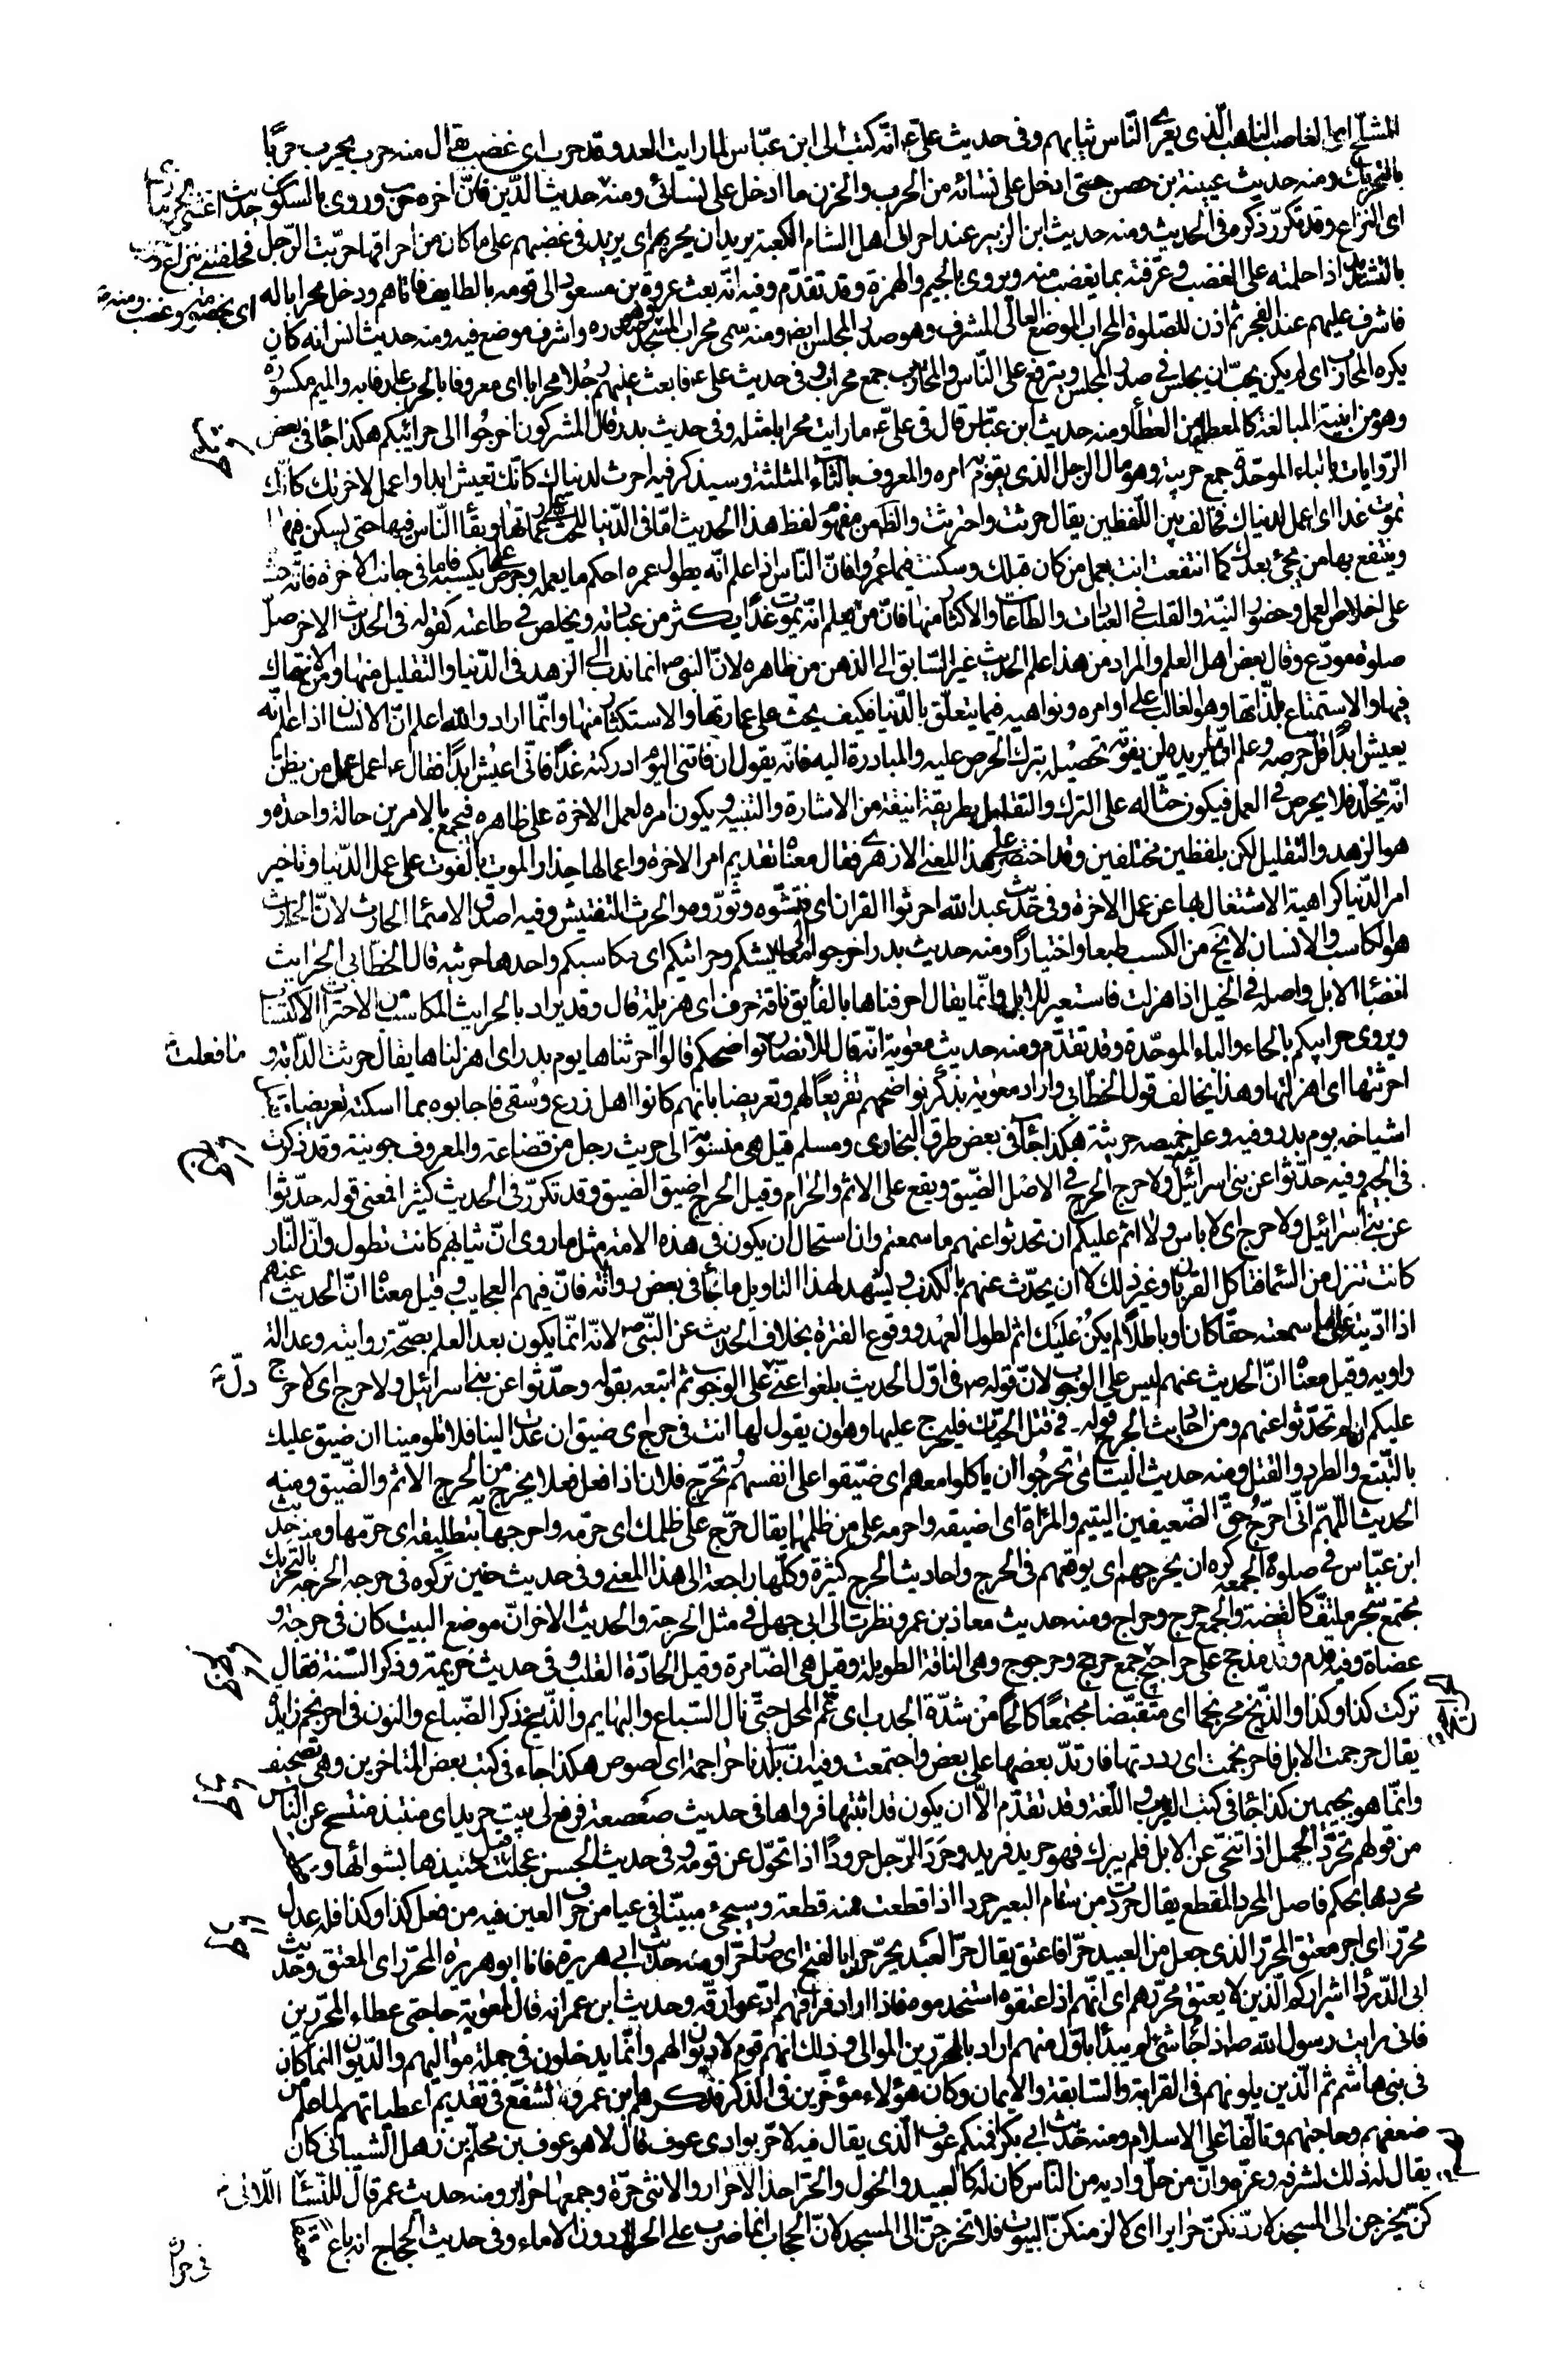 المشلّح اى الغاصب الناهب الّذى يعرّى النّاس ثيابهم وفى حديث علىّ ع انّه كتب الى ابن عبّاس لما رايت العدو قد حرب اى غضب يقال منه حرب يحرب حربًا
بالتحريك ومنه حديث عيينة بن حصن حتى ادخل على نسائه من الحرب والحزن ما ادخل على نسائى ومنه حديث الدّين فانّ اخره حرب وروى بالسكون
اى النزاع وقد تكرّر ذكره فى الحديث ومنه حديث ابن الزبير عند احراق اهل الشام الكعبة يريد ان يحربهم اى يزيد فى غضبهم على ما كان من احراقها حرّبت الرّجل
بالتشديد اذا حملته على الغضب وعرّفته بما يغضب منه ويروى بالجيم والهمزة وقد تقدّم وفيه انّه بعث عروة بن مسعود الى قومه بالطايف فاتاهم ودخل محرابا له
فاشرف عليهم عند الفجر ثم اذن للصّلوة المحراب الموضع العالى المشرف وهو صدر المجلس ايضا ومنه سمى محراب المسجد وهو صدره واشرف موضع فيه ومنه حديث انس انه كان
يكره المحاريب اى لم يكن يحبّ ان يجلس فى صدر المجلس ويترفع على النّاس والمحاريب جمع محراب وفى حديث على ع فابعث عليهم رجلا محرابا اى معروفا بالحرب عارفا بها والميم مكسورة
وهو من ابنية المبالغة كالمعطاء من العطاء ومنه حديث ابن عبّاس قال فى علىّ ع ما رايت محرابا مثله وفى حديث بدر قال المشركون اخرجوا الى حرائبكم هكذا جاء فى بعض
الرّوايات بالباء الموحّدة جمع حريبة وهو مال الرجل الذى يقوم به امره والمعروف بالثاء المثلثة وسيذكر فيه احرث لدنياك كانّك تعيش ابدا واعمل لاخرتك كانّك
تموت غدا اى اعمل لدنياك فخالف بين اللّفظين يقال حرثت واحترثت والظّاهر من مفهوم لفظ هذا الحديث امّا فى الدّنيا للحث على عمارتها وبقاء النّاس فيها حتى يسكن فيها
وينتفع بها من يجئ بعدك كما انتفعت انت بعمل من كان قبلك وسكنت فيما عمروا فانّ النّاس اذا علم انّه يطول عمره احكم ما يعمله وحرص على ما يكسبه واما فى جانب الاخرة فانّه حث
على اخلاص العمل وحضور النيّة والقلب فى العبادات والطّاعات والاكثار منها فانّ من يعلم انّه يموت غدًا يكثر من عبادته ويخلص فى طاعته كقوله فى الحديث الاخر صلّ
صلوة مودّع وقال بعض اهل العلم والمراد من هذا الحديث غير السّابق الى الذهن من ظاهره لانّ النبى ص انما ندب الى الزهد فى الدّنيا والتقليل منها ومن الانهماك
فيها والاستمتاع بلذّاتها وهو الغالب على اوامره ونواهيه فيما يتعلّق بالدّنيا فكيف يحثّ على عمارتها والاستكثار منها وانّما اراد والله اعلم انّ الانسان اذا علم انّه
يعيش ابدًا قلّ حرصه وعلم انّ ما يريده لن يفوته تحصيله بترك الحرص عليه والمبادرة اليه فانّه يقول ان فاتنى اليوم ادركته غدًا فانّى اعيش ابدًا فقال ع اعمل عمل من يظنّ
انّه يخلّد فلا يحرص فى العمل فيكون حثّا له على الترك والتقليل بطريقة انيقة من الاشارة والتنبيه ويكون امره لعمل الاخرة على ظاهره فيجمع بالامرين حالة واحدة و
هو الزهد والتقليل لكن بلفظين مختلفين وقد اختصر هذا المعنى الازهرى فقال معناه تقديم امر الاخرة واعمالها حذار الموت بالفوت على عمل الدّنيا وتاخير
امر الدّنيا كراهية الاشتغال بها عن عمل الاخرة وفى حديث عبد الله احرثوا القران اى فتّشوه وثوّروه والحرث التفتيش وفيه اصدق الاسماء الحارث لانّ الحارث
هو الكاسب والانسان لا يخ من الكسب طبعا واختيارًا ومنه حديث بدر اخرجوا الى معايشكم وحرائثكم اى مكاسبكم واحدها حريثة قال الخطّابى الحرايث
انضاء الابل واصله فى الخيل اذا هزلت فاستعير للابل وانّما يقال احرفناها بالفاء يق ناقة حرف اى هزيلة قال وقد يراد بالحرايث المكاسب من الاحتراث الاكتساب
ويروى حرايبكم بالحاء والباء الموحّدة وقد تقدّم ومنه حديث معوية انّه قال للانصار نواضحكم قالوا احرثناها يوم بدر اى اهزلناها يقال حرثت الدّابة و ما فعلت
احرثتها اى اهزلتها وهذا يخالف قول الخطّابى واراد معوية بذكر نواضحهم تقريعًا لهم وتعريضا بانّهم كانوا اهل زرع وسقى فاجابوه بما اسكته تعريضا بقتل
اشياخه يوم بدر وفيه وعليه خميصه حريثيّة هكذا جاء فى بعض طرق البخارى ومسلم قيل هى منسوبة الى حريث رجل من قضاعة والمعروف جونية وقد ذكرت
فى الجيم وفيه حدّثوا عن بنى اسرائيل ولا حرج الحرج فى الاصل الضّيق ويقع على الاثم والحرام وقيل الحرج اضيق الضيق وقد تكرّر فى الحديث كثيرا فمعنى قوله حدّثوا
عن بنى اسرائيل ولا حرج اى لا باس ولا اثم عليكم ان تحدثوا عنهم ما سمعتم وان استحال ان يكون فى هذه الامة مثل ما روى انّ ثيابهم كانت تطول وانّ النّار
كانت تنزل من السّماء فتاكل القربان وغير ذلك لا ان يحدّث عنهم بالكذب ويشهد لهذا التاويل ما جاء فى بعض رواياته فانّ فيهم العجايب وقيل معناه انّ الحديث عنهم
اذا ادّيته على ما سمعته حقّا كان او باطلًا لم يكن عليك اثم لطول العهد ووقوع الفترة بخلاف الحديث عن النّبى ص لانّه انّما يكون بعد العلم بصحّة روايته وعدالة
راويه وقيل معناه انّ الحديث عنهم ليس على الوجوب لانّ قوله ص فى اوّل الحديث بلغوا عنّى على الوجوب ثم اتبعه بقوله وحدّثوا عن بنى اسرائيل ولا حرج اى لا حرج دلّ
عليكم ان لم تحدّثوا عنهم ومن احاديث الحرج قوله فى قتل الحيّات فليحرج عليها وهو ان يقول لها انت فى حرج اى ضيق ان عدت الينا فلا تلومينا ان ضيق عليك
بالتّتبّع والطرد والقتل ومنه حديث اليتامى تحرجوا ان ياكلوا معهم اى ضيّقوا على انفسهم وتحرّج فلان اذا فعل فعلا يخرج به من الحرج الاثم والضّيق ومنه
الحديث اللّهمّ انّى احرّج حقّ الضّعيفين اليتيم والمرأة اى اضيقه واحرمه على من ظلمهما يقال حرّج علىّ ظلمك اى حرّمه واحرجها بتطليقة اى حرّمها ومنه حديث
ابن عبّاس فى صلوة الجمعة كره ان يحرجهم اى يوقعهم فى الحرج واحاديث الحرج كثيرة وكلّها راجعة الى هذا المعنى وفى حديث حنين تركوه فى حرجة الحرجة بالتحريك
مجتمع شجر ملتفّ كالغيضة والجمع حرج وحراج ومنه حديث معاذ بن عمرو نظرت الى ابى جهل فى مثل الحرجة والحديث الاخر انّ موضع البيت كان فى حرجة و
عضاة وفيه قدم وفد مذحج على حراجيج جمع حرجج وحرجوج وهى الناقة الطويلة وقيل هى الضّامرة وقيل الحادّة القلب وفى حديث خزيمة وذكر السّنة فقال
تركت كذا وكذا والذّيخ محرنجما اى متقبّضا مجتمعًا كالحًا من شدّة الجدب اى عمّ المحل حتّى نال السّباع والبهايم والذّيخ ذكر الضّباع والنون فى احرنجم زايدة
يقال حرجمت الابل فاحرنجمت اى رددتها فارتدّ بعضها على بعض واجتمعت وفيه انّ بلدنا حراجمة اى لصوص هكذا جاء فى كتب بعض المتاخرين وهى تصحيف
وانّما هو بجيمين كذا جاء فى كتب الغريب واللّغة وقد تقدّم الّا ان يكون قد اثبتها فرواها فى حديث صعصعة فرفع لى بيت حريد اى منتبذ متنحّ عن النّاس
من قولهم تحرّد الجمل اذا تنحّى عن الابل فلم يبرك فهو حريد فريد وحرد الرّجل حرودًا اذا تحوّل عن قومه وفى حديث الحسن عجلت قبل حنيذها بشوائها و
محردها بحكم فاصل المحرد المقطع يقال حردت من سنام البعير حردا اذا قطعت منه قطعة وسيجئ مبيّنا فى عيا من حرف العين فيه من فعل كذا وكذا فله عدل
محرّر اى اجر معتق المحرّر الذى جعل من العبيد حرّا فاعتق يقال حرّ العبد يحرّ حرارا بالفتح اى صار حرّا ومنه حديث ابى هريرة فانا ابو هريرة المحرّر اى المعتق وحديث
ابى الدّرداء شراركم الّذين لا يعتق محرّرهم اى انّهم اذا اعتقوه استخدموه فاذا اراد فراقهم ادّعوا رقّه وحديث ابن عمر انه قال لمعوية حاجتى عطاء المحرّرين
فانى رايت رسول الله ص اذا جاء شئ لم يبدأ باوّل منهم اراد بالمحرّرين الموالى وذلك انهم قوم لا ديوان لهم وانّما يدخلون فى جملة مواليهم والدّيوان انما كان
فى بنى هاشم ثم الّذين يلونهم فى القرابة والسّابقة والايمان وكان هؤلاء مؤخّرين فى الذكر فذكرهم ابن عمر وتشفّع فى تقديم اعطياتهم لما علم من
ضعفهم وحاجتهم وتالّفا على الاسلام ومنه حديث ابى بكر افمنكم عوف الّذى يقال فيه لا حرّ بوادى عوف قال لا هو عوف بن محلّم بن ذهل الشيبانى كان
يقال له ذلك لشرفه وعزّه وانّ من حلّ واديه من النّاس كان له كالعبيد والخول والحرّ احد الاحرار والانثى حرّة وجمعها حراير ومنه حديث عمر قال للنّساء اللّاتى
كنّ يخرجن الى المسجد لاردّنّكنّ حرايرا اى لالزمنكنّ البيوت فلا تخرجن الى المسجد لانّ الحجاب انّما ضرب على الحراير دون الاماء وفى حديث الحجاج انه باع